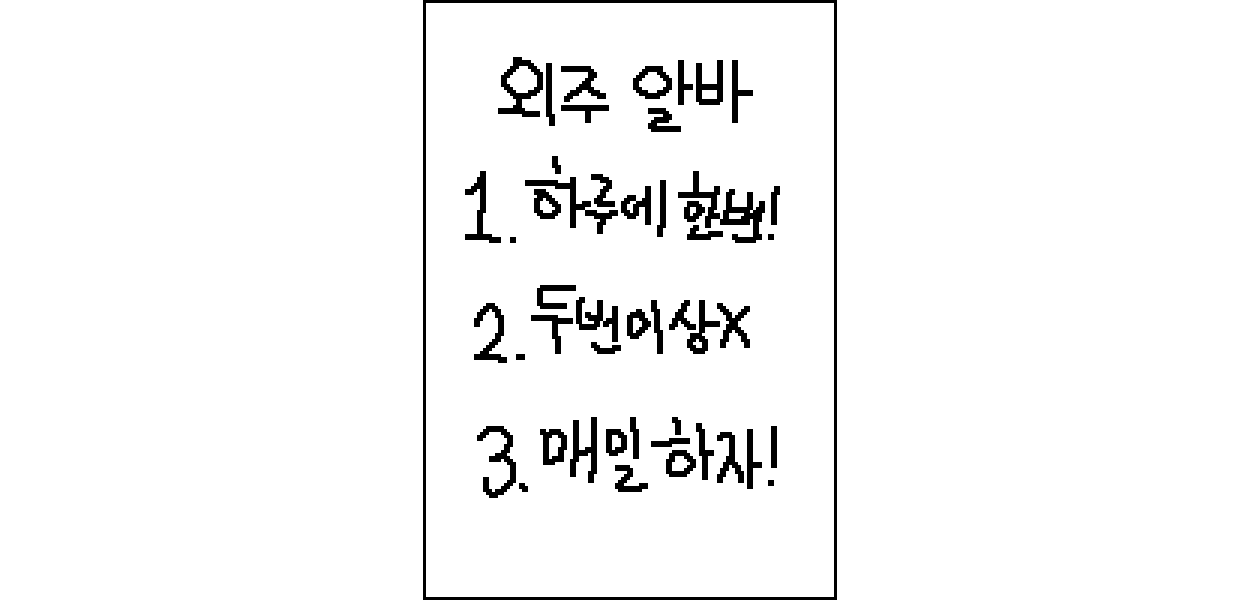 외주 알바
1. 하루에 한번!
2. 두번이상X
3. 매일하자!